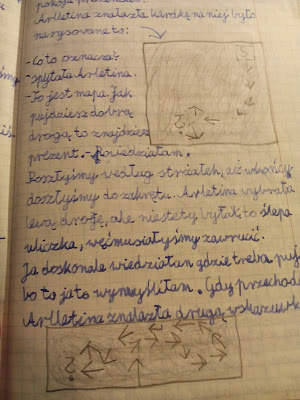 pokoju
Arletina znalazła kartkę na niej było
narysowane to:
-Co to oznacza?
-spytała Arletina.
-To jest mapa. Jak
pójdziesz dobrą
drogą to znajdziesz
prezent. - Powiedziałam.
Poszłyśmy według strzałek, aż w końcu
doszłyśmy do zakrętu. Arletina wybrała
lewą drogę, ale niestety był a to ślepa
uliczka, więc musiałyśmy zawrócić.
Ja doskonale wiedziałam gdzie trzeba
bo to ja to wymyśliłam. Gdy
Arletina znalazła drugą wskazówk